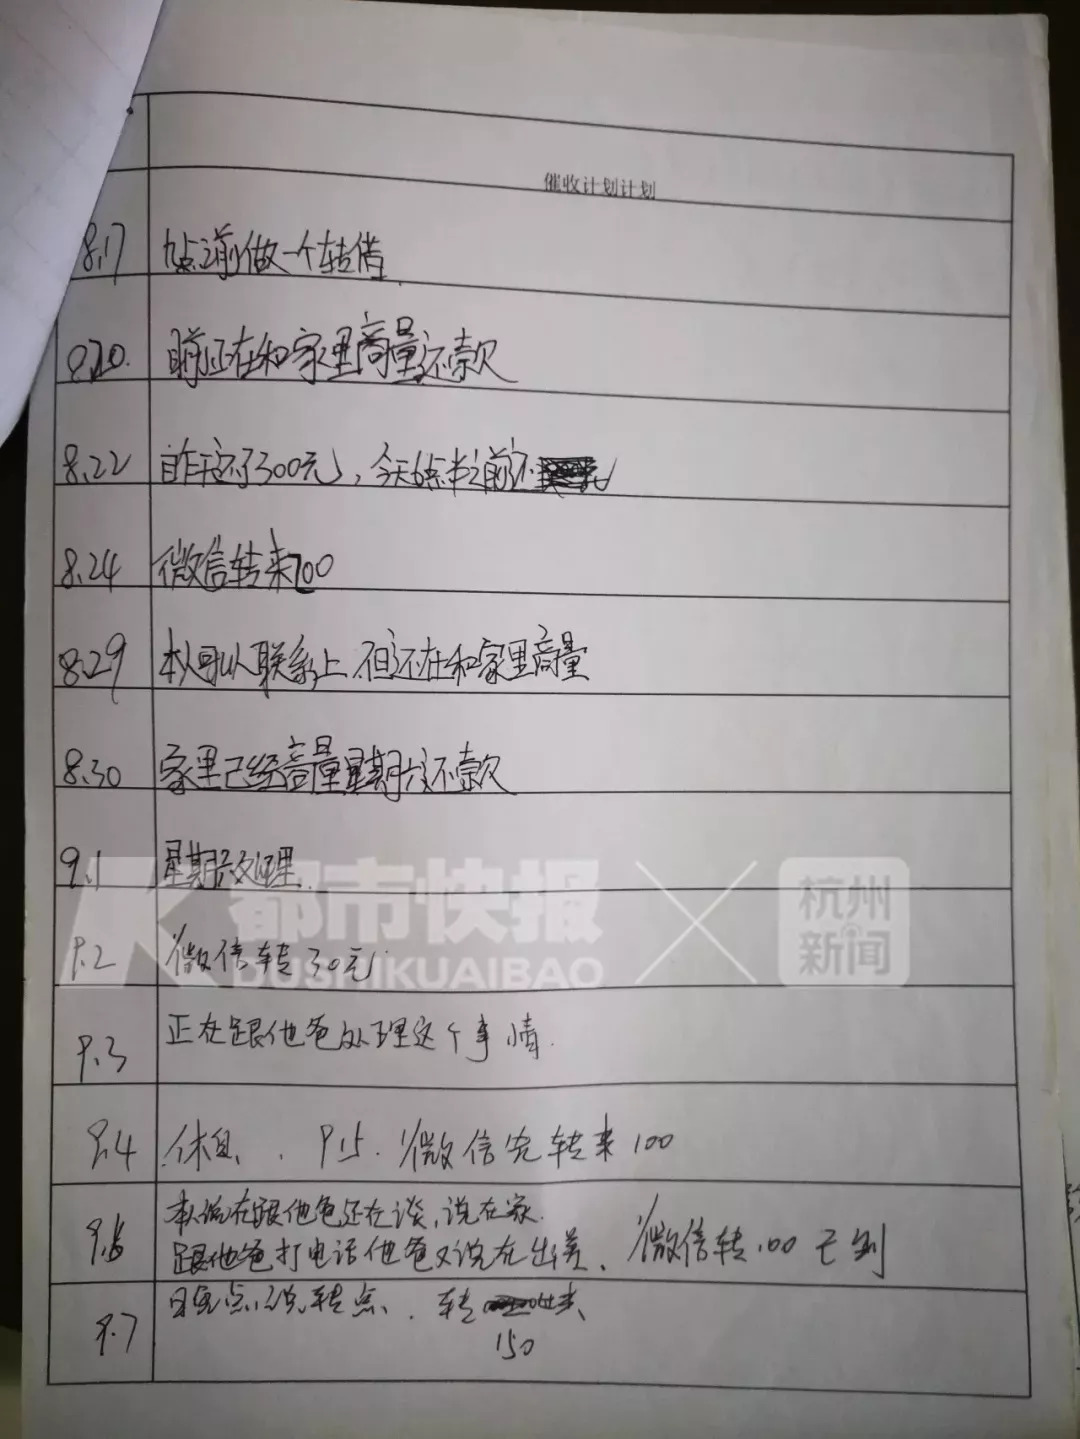 催收计划计划
8.17 九点之前做一个转借
8.20. 目前正在和家里商量还款
8.22 自昨天还了300元，今天6点半之前还
8.24 微信转来200
8.29 本人可以联系上，但还在和家里商量
8.30 家里已经商量星期六还款
9.1 星期六处理.
9.2 微信转30元
9.3 正在跟他爸处理这个事情.
9.4 休息、. 9.5. 微信先转来100
9.6 本人说在跟他爸还在谈，说在家.
跟他爸打电话他爸又说在出差、微信转100已到
9.7 转
150
都市快报
DUSHIKUAIBAO
杭州
新闻